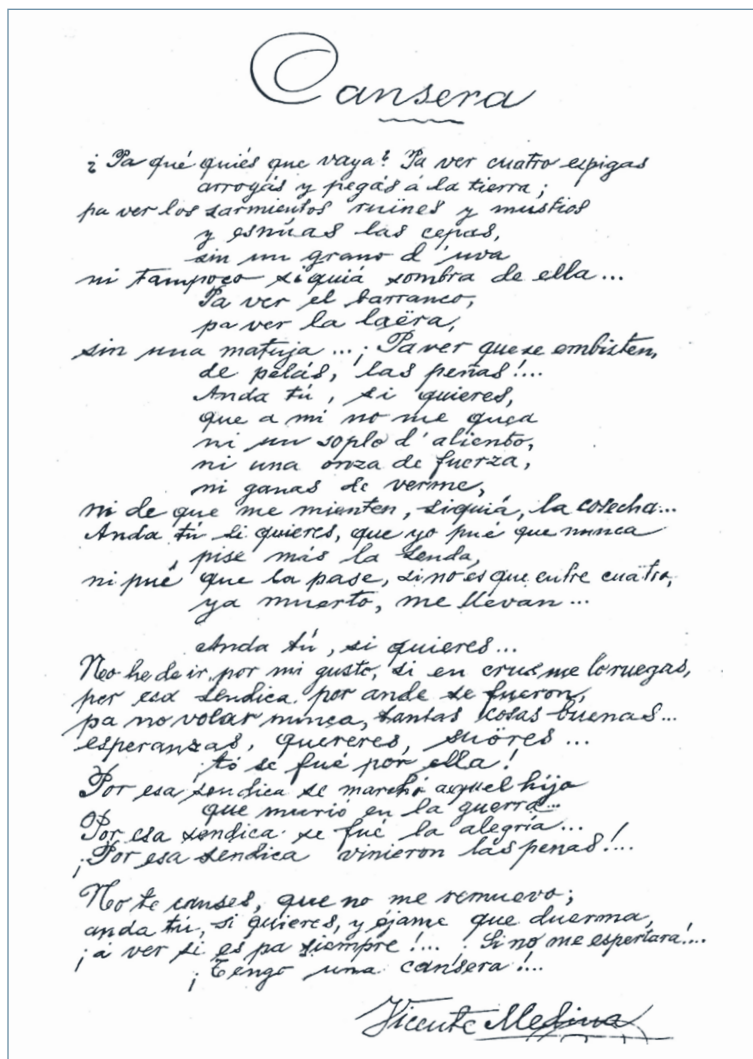 Cansera
¿Pa qué quiés que vaya? Pa ver cuatro espigas
arrogás y pegás á la tierra;
pa ver los sarmientos ruïnes y mustios
y esnúas las cepas,
sin un grano d'uva
ni tampoco siquiá sombra de ella...
Pa ver el barranco,
pa ver la laëra,
sin una matuja...¡Pa ver que se embisten,
de pelás, las peñas!...
Anda tú, si quieres,
que a mi no me queca
ni un soplo d'aliento,
ni una onza de fuerza,
ni ganas de verme,
ni de que me mienten, siquiá, la cosecha...
Anda tú si quieres, que yo pué que nunca
pise más la senda,
ni pué que la pase, si no es que entre cuatro,
ya muerto, me llevan...
Anda tú, si quieres...
No he de ir, por mi gusto, si en crus me lo ruegas,
por esa sendica por ande se fueron,
pa no volar nunca, tantas cosas buenas...
esperanzas, quereres, suöres...
¡tó se fué por ella!
Por esa sendica se marchó aquel hijo
que murió en la guerra...
Por esa sendica se fué la alegría...
¡Por esa sendica vinieron las penas!...
No te canses, que no me remuevo;
anda tú, si quieres, y éjame que duerma,
¡á ver si es pa siempre!... ¡Si no me espertara!...
¡Tengo una cansera!...
Vicente Medina